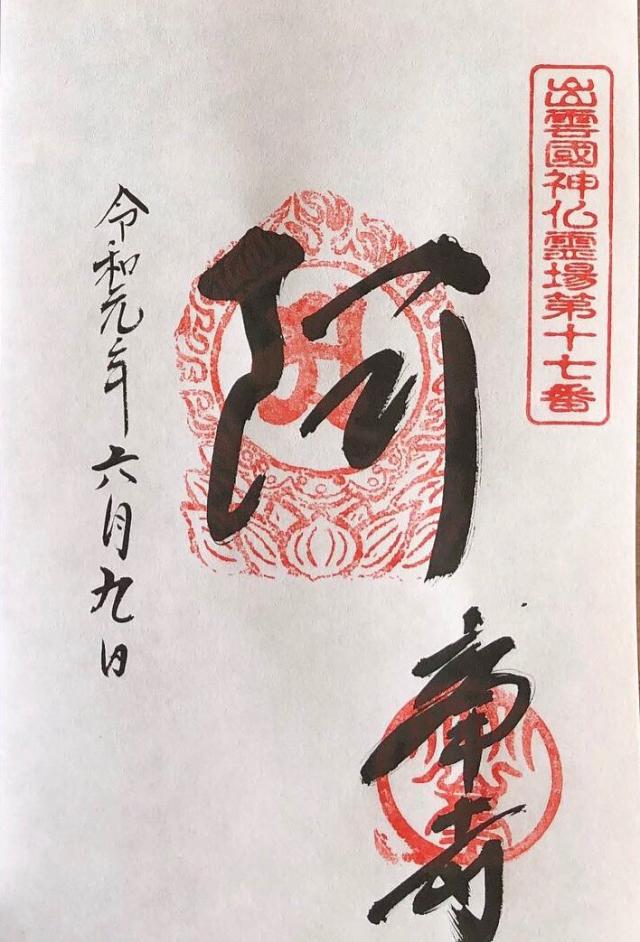 出雲國神仏霊場第十七番
阿
寺
令和元年六月九日